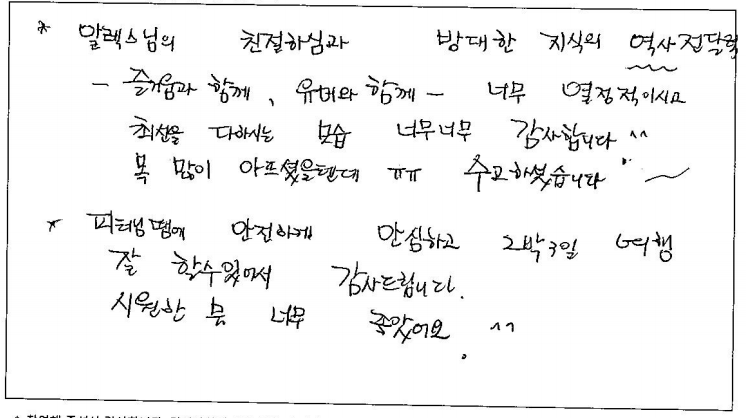 * 알렉스님의 친절하심과 방대한 지식의 역사전달력
- 즐거움과 함께, 유머와 함께 - 너무 열정적이시고
최선을 다하시는 모습 너무너무 감사합니다 ^^
목 많이 아프셨을텐데 ㅠㅠ 수고하셨습니다 ~
* 피터님땜에 안전하게 안심하고 2박3일 여행
잘 할수있어서 감사드립니다.
시원한 물 너무 좋았어요. ^^